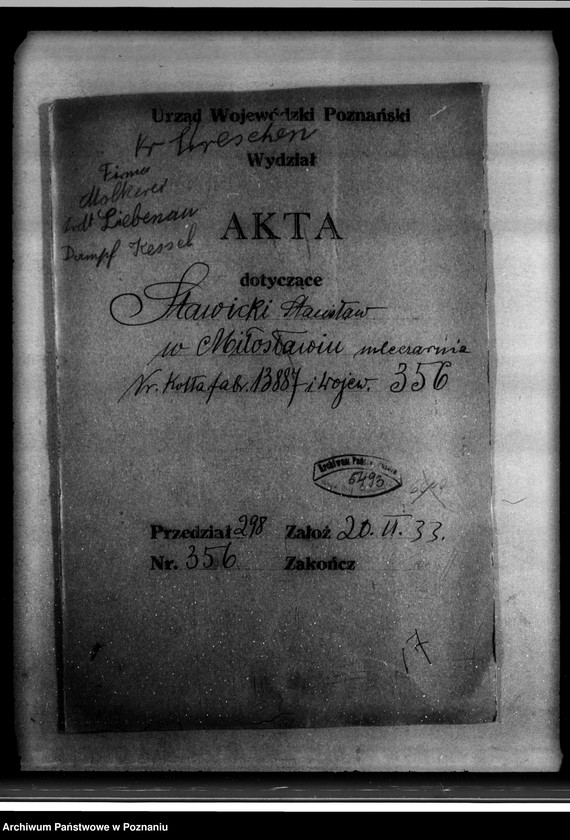 Urząd Wojewódzki Poznański
Kr Wreschen
Wydział
Firma
Molkerei
Liebenau
Dampf Kessel
AKTA
dotyczące
Sławicki Stanisław
w Miłosławiu mleczarnia
Nr. Kotła fabr. 13887 i wojew. 356
Archiwum Państw.
5493
Przedział 298 Założ 20. II. 33.
Nr. 356 Zakończ
17
Archiwum Państwowe w Poznaniu